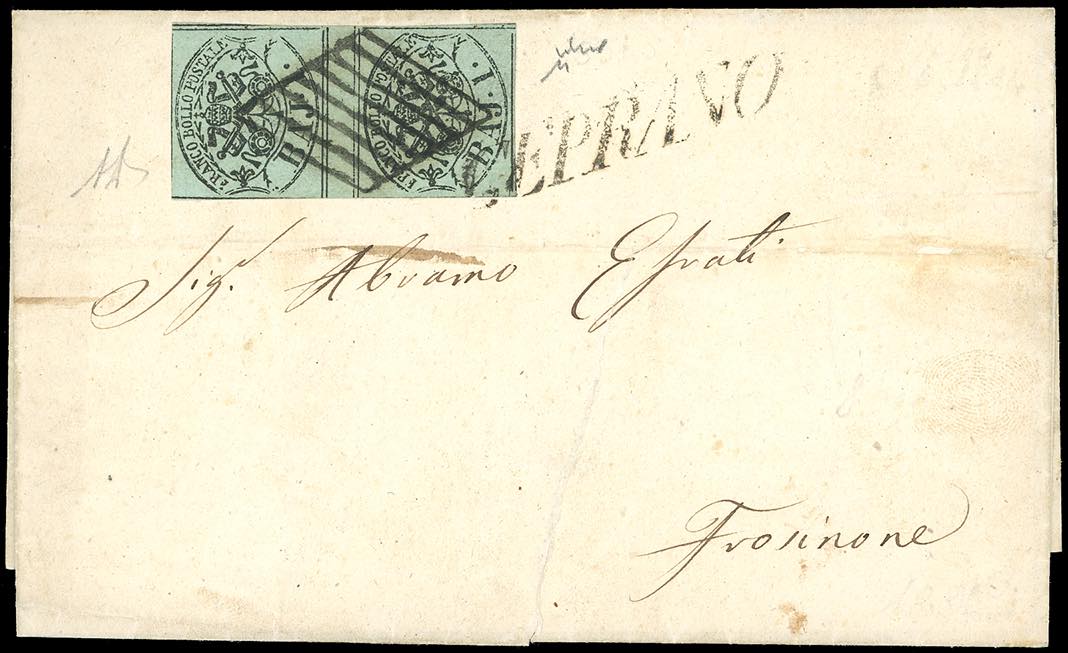 FRANCO BOLLO POSTALE
BAJ. 1.
FRANCO BOLLO POSTALE
BAJ. 1.
CEPRANO
Sig.r Abramo Efrati
Frosinone